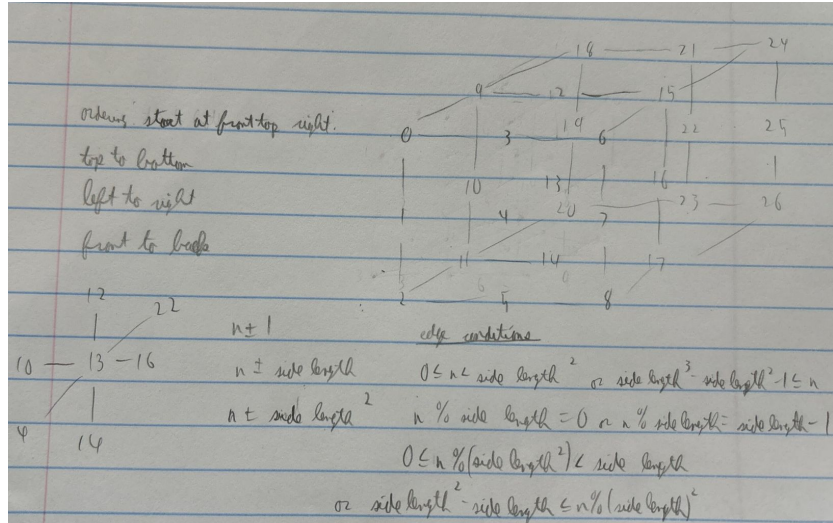 18 21 24
9 12 15
ordering start at front top right.
0 3 19 6 22 25
top to bottom
10 13 16
left to right
1 4 20 7 23 26
front to back
11 14 17
2 5 8
12 22
n ± 1
edge conditions
10 — 13 — 16
n ± side length
0 ≤ n < side length² or side length³ - side length² - 1 ≤ n
n ± side length²
n % side length = 0 or n % side length = side length - 1
4 14
0 ≤ n % (side length²) < side length
or side length² - side length ≤ n % (side length)²